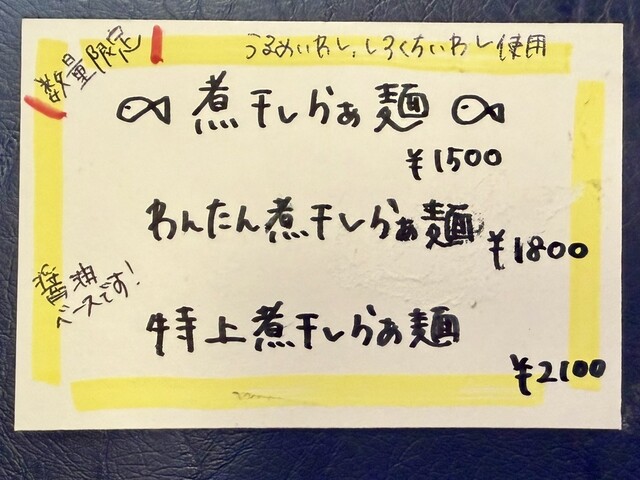 数量限定
うるめいわし、しろくちいわし使用
煮干しらぁ麺
¥1500
わんたん煮干しらぁ麺
¥1800
醤油
ベースです!
特上煮干しらぁ麺
¥2100